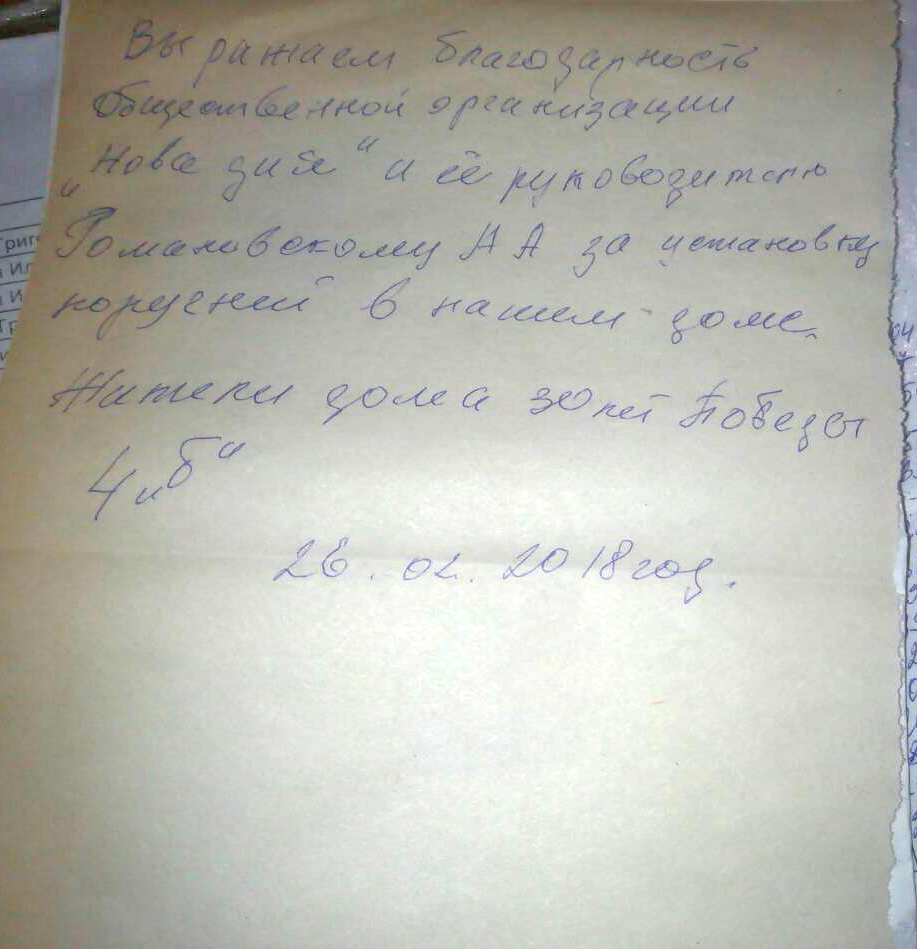 Выражаем благодарность
Общественной организации
„Нова дия" и её руководителю
Романовскому А А за установку
поручней в нашем доме.
Жители дома 30 лет Победы
4 „б"
26. 02. 2018 год.